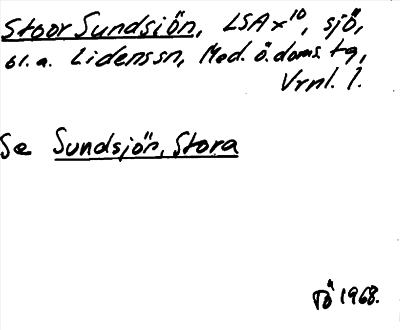 Stoor Sundsjön, LSA x¹⁰, sjö,
bl.a. Lidenssn, Med.ö.doms. tg,
Vrnl. l.
Se Sundsjön, Stora
TÖ 1968.